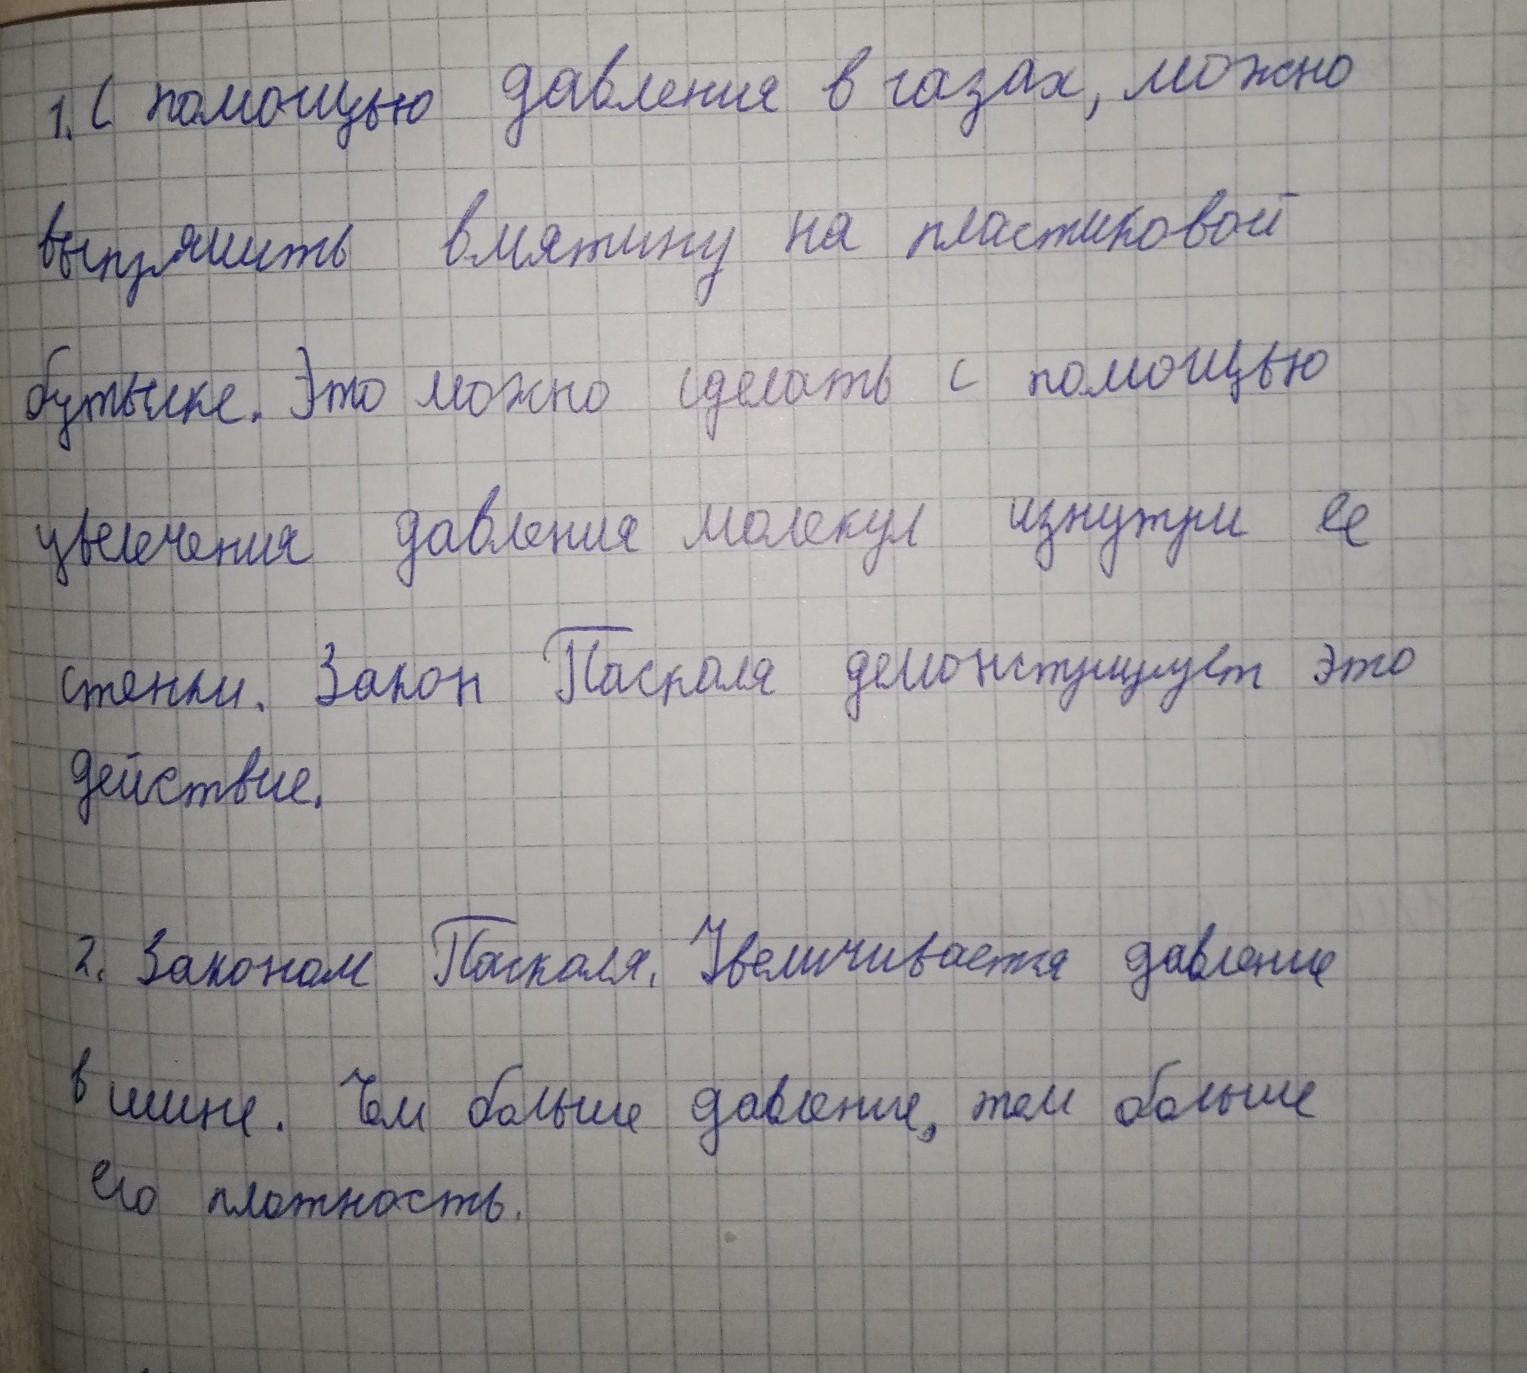 1. С помощью давления в газах, можно
выпрямить вмятину на пластиковой
бутылке. Это можно сделать с помощью
увелечения давления молекул изнутри ее
стенки. Закон Паскаля это
действие.
2. Законом Паскаля. Увеличивается давление
в шине. Чем больше давление, тем больше
его плотность.